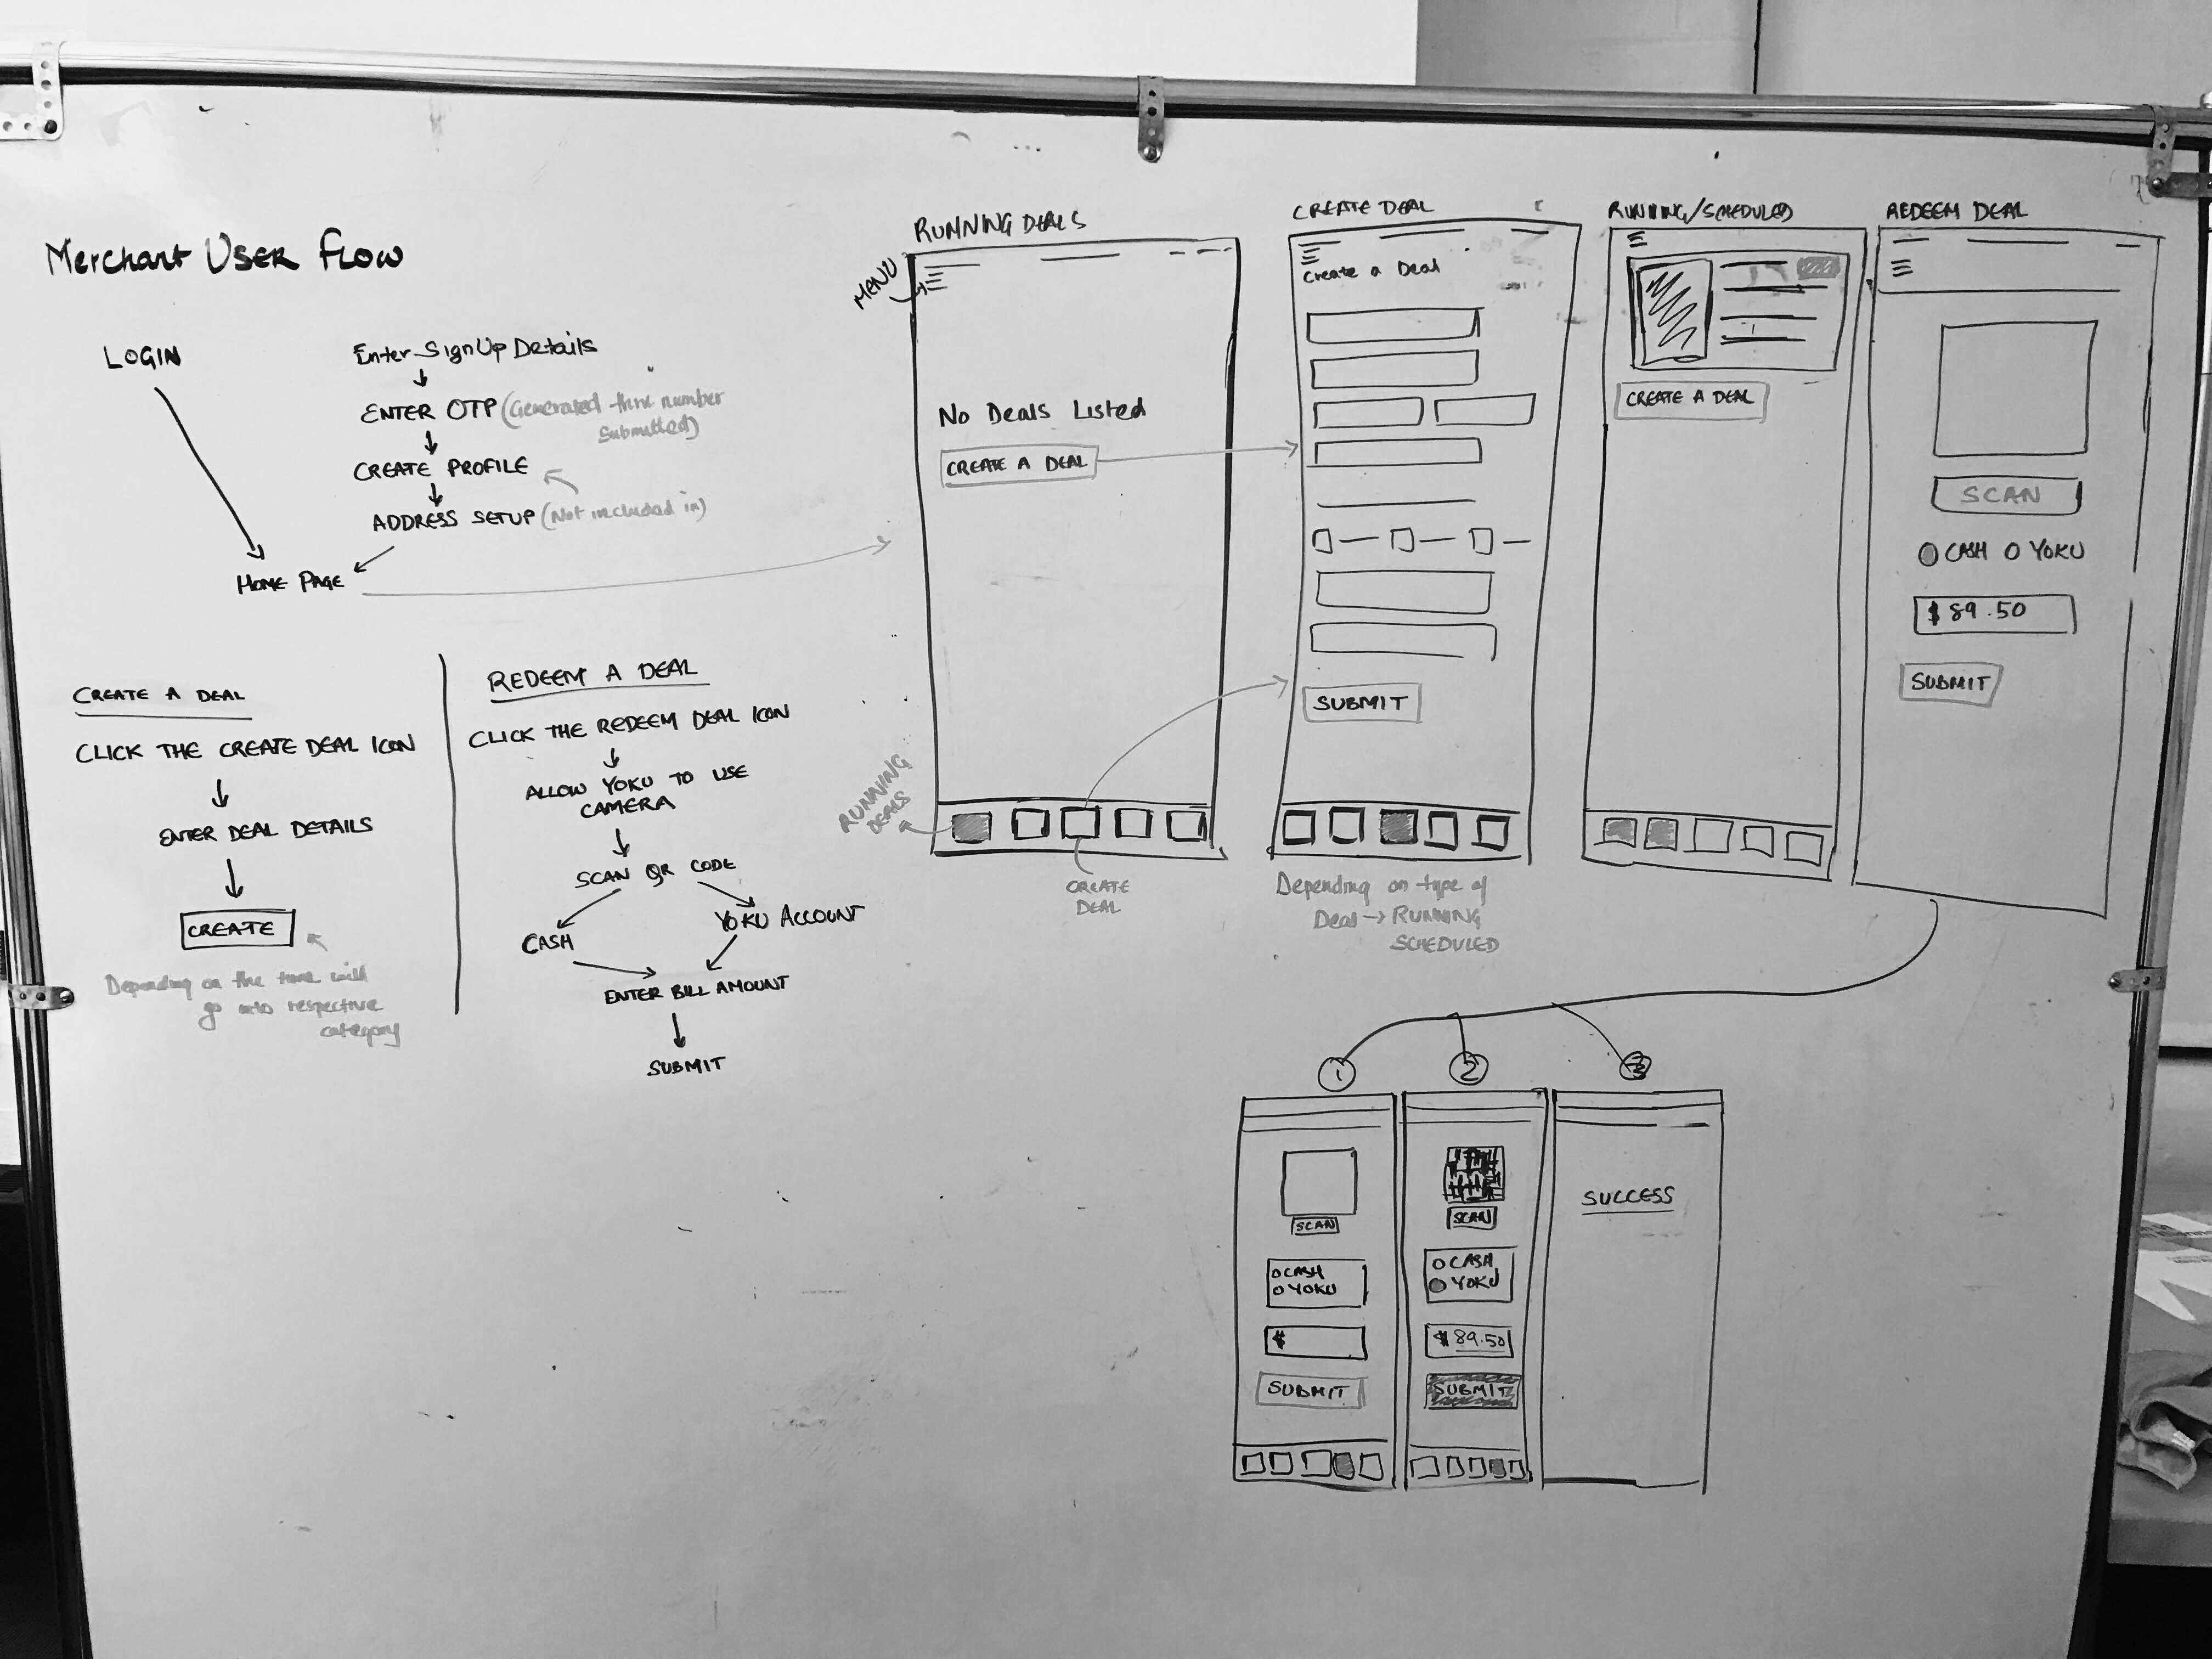 Merchant User Flow
LOGIN
Enter Sign Up Details
ENTER OTP (Generated thru number
Submitted)
CREATE PROFILE
ADDRESS SETUP (Not included in)
HOME PAGE
CREATE A DEAL
CLICK THE CREATE DEAL ICON
ENTER DEAL DETAILS
CREATE
Depending on the time will
go into respective
category
REDEEM A DEAL
CLICK THE REDEEM DEAL ICON
ALLOW YOKU TO USE
CAMERA
SCAN QR CODE
CASH
YOKU ACCOUNT
ENTER BILL AMOUNT
SUBMIT
RUNNING DEALS
MENU
No Deals Listed
CREATE A DEAL
RUNNING
DEALS
CREATE
DEAL
CREATE DEAL
Create a Deal
SUBMIT
Depending on type of
Deal → RUNNING
SCHEDULED
RUNNING/SCHEDULED
CREATE A DEAL
REDEEM DEAL
SCAN
CASH YOKU
$ 89.50
SUBMIT
1
2
3
SCAN
CASH
YOKU
$
SUBMIT
SCAN
CASH
YOKU
$ 89.50
SUBMIT
SUCCESS